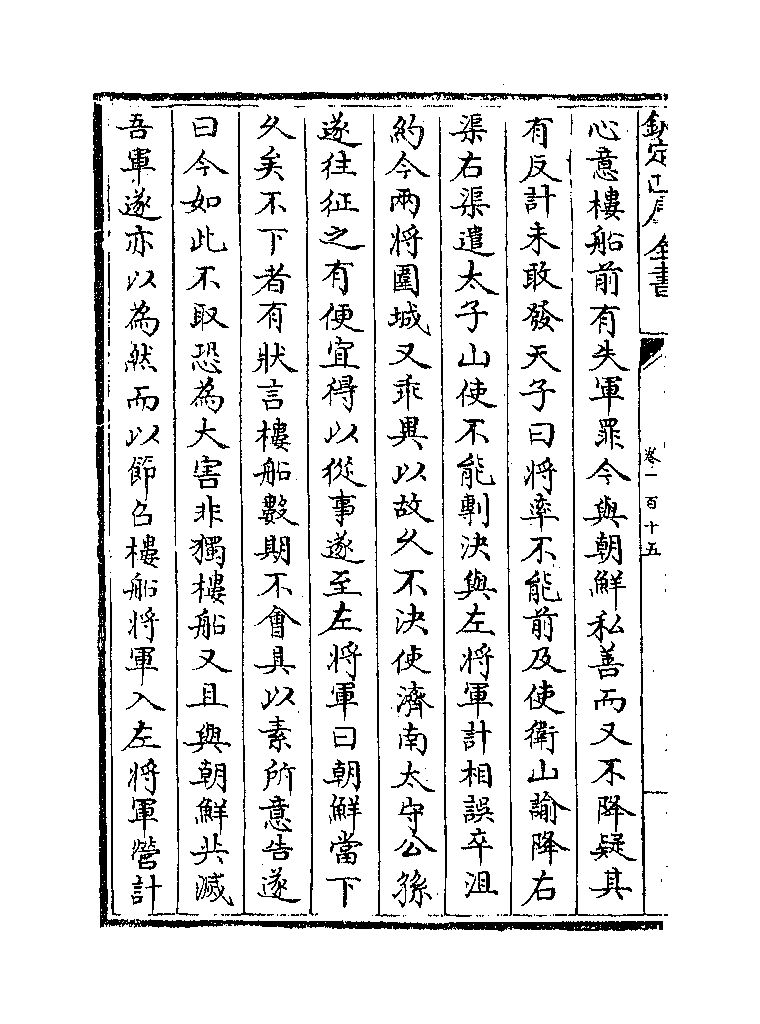 心意樓船前有失軍罪今與朝鮮私善而又不降疑其
有反計未敢發天子曰将率不能前及使衛山諭降右
渠右渠遣太子山使不能剸決與左将軍計相誤卒沮
約今兩将圍城又乖異以故乆不決使濟南太守公孫
遂往征之有便宜得以從事遂至左将軍曰朝鮮當下
乆矣不下者有狀言樓船數期不會具以素所意告遂
曰今如此不取恐為大害非獨樓船又且與朝鮮共滅
吾軍遂亦以為然而以節召樓船将軍入左将軍營計
卷一百十五